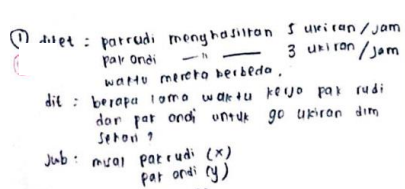 ① diket : pak rudi menghasilkan 5 ukiran / jam
pak andi —"— 3 ukiran / jam
waktu mereka berbeda.
dit : berapa lama waktu kerja pak rudi
dan pak andi untuk 90 ukiran dlm
sehari ?
Jwb : misal pak rudi (x)
pak andi (y)